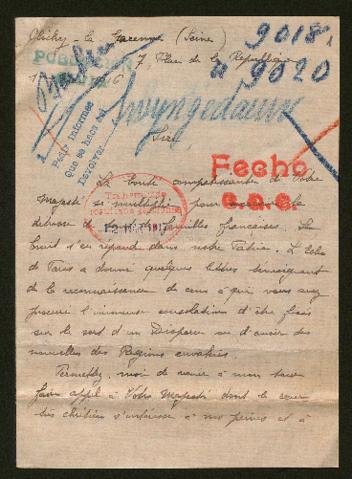 Clichy - la Garenne (Seine)
7 Place de la République
9018
9020
Swyngedauw
Pedir informes
Que se haga
Devolver
Sire
Fecho
La bonté compatissante de Votre
Majesté se multiplie pour
détresse de familles françaises. Le
bruit s'en répand dans notre Patrie. L'Echo
de Paris a donné quelques lettres témoignant
de la reconnaissance de ceux à qui vous avez
procuré l'immense consolation d'être fixés
sur le sort d'un Disparu ou d'avoir des
nouvelles des Régions envahies.
Permettez-moi de venir à mon tour
faire appel à Votre Majesté dont le cœur
très chrétien s'intéresse à nos peines et à